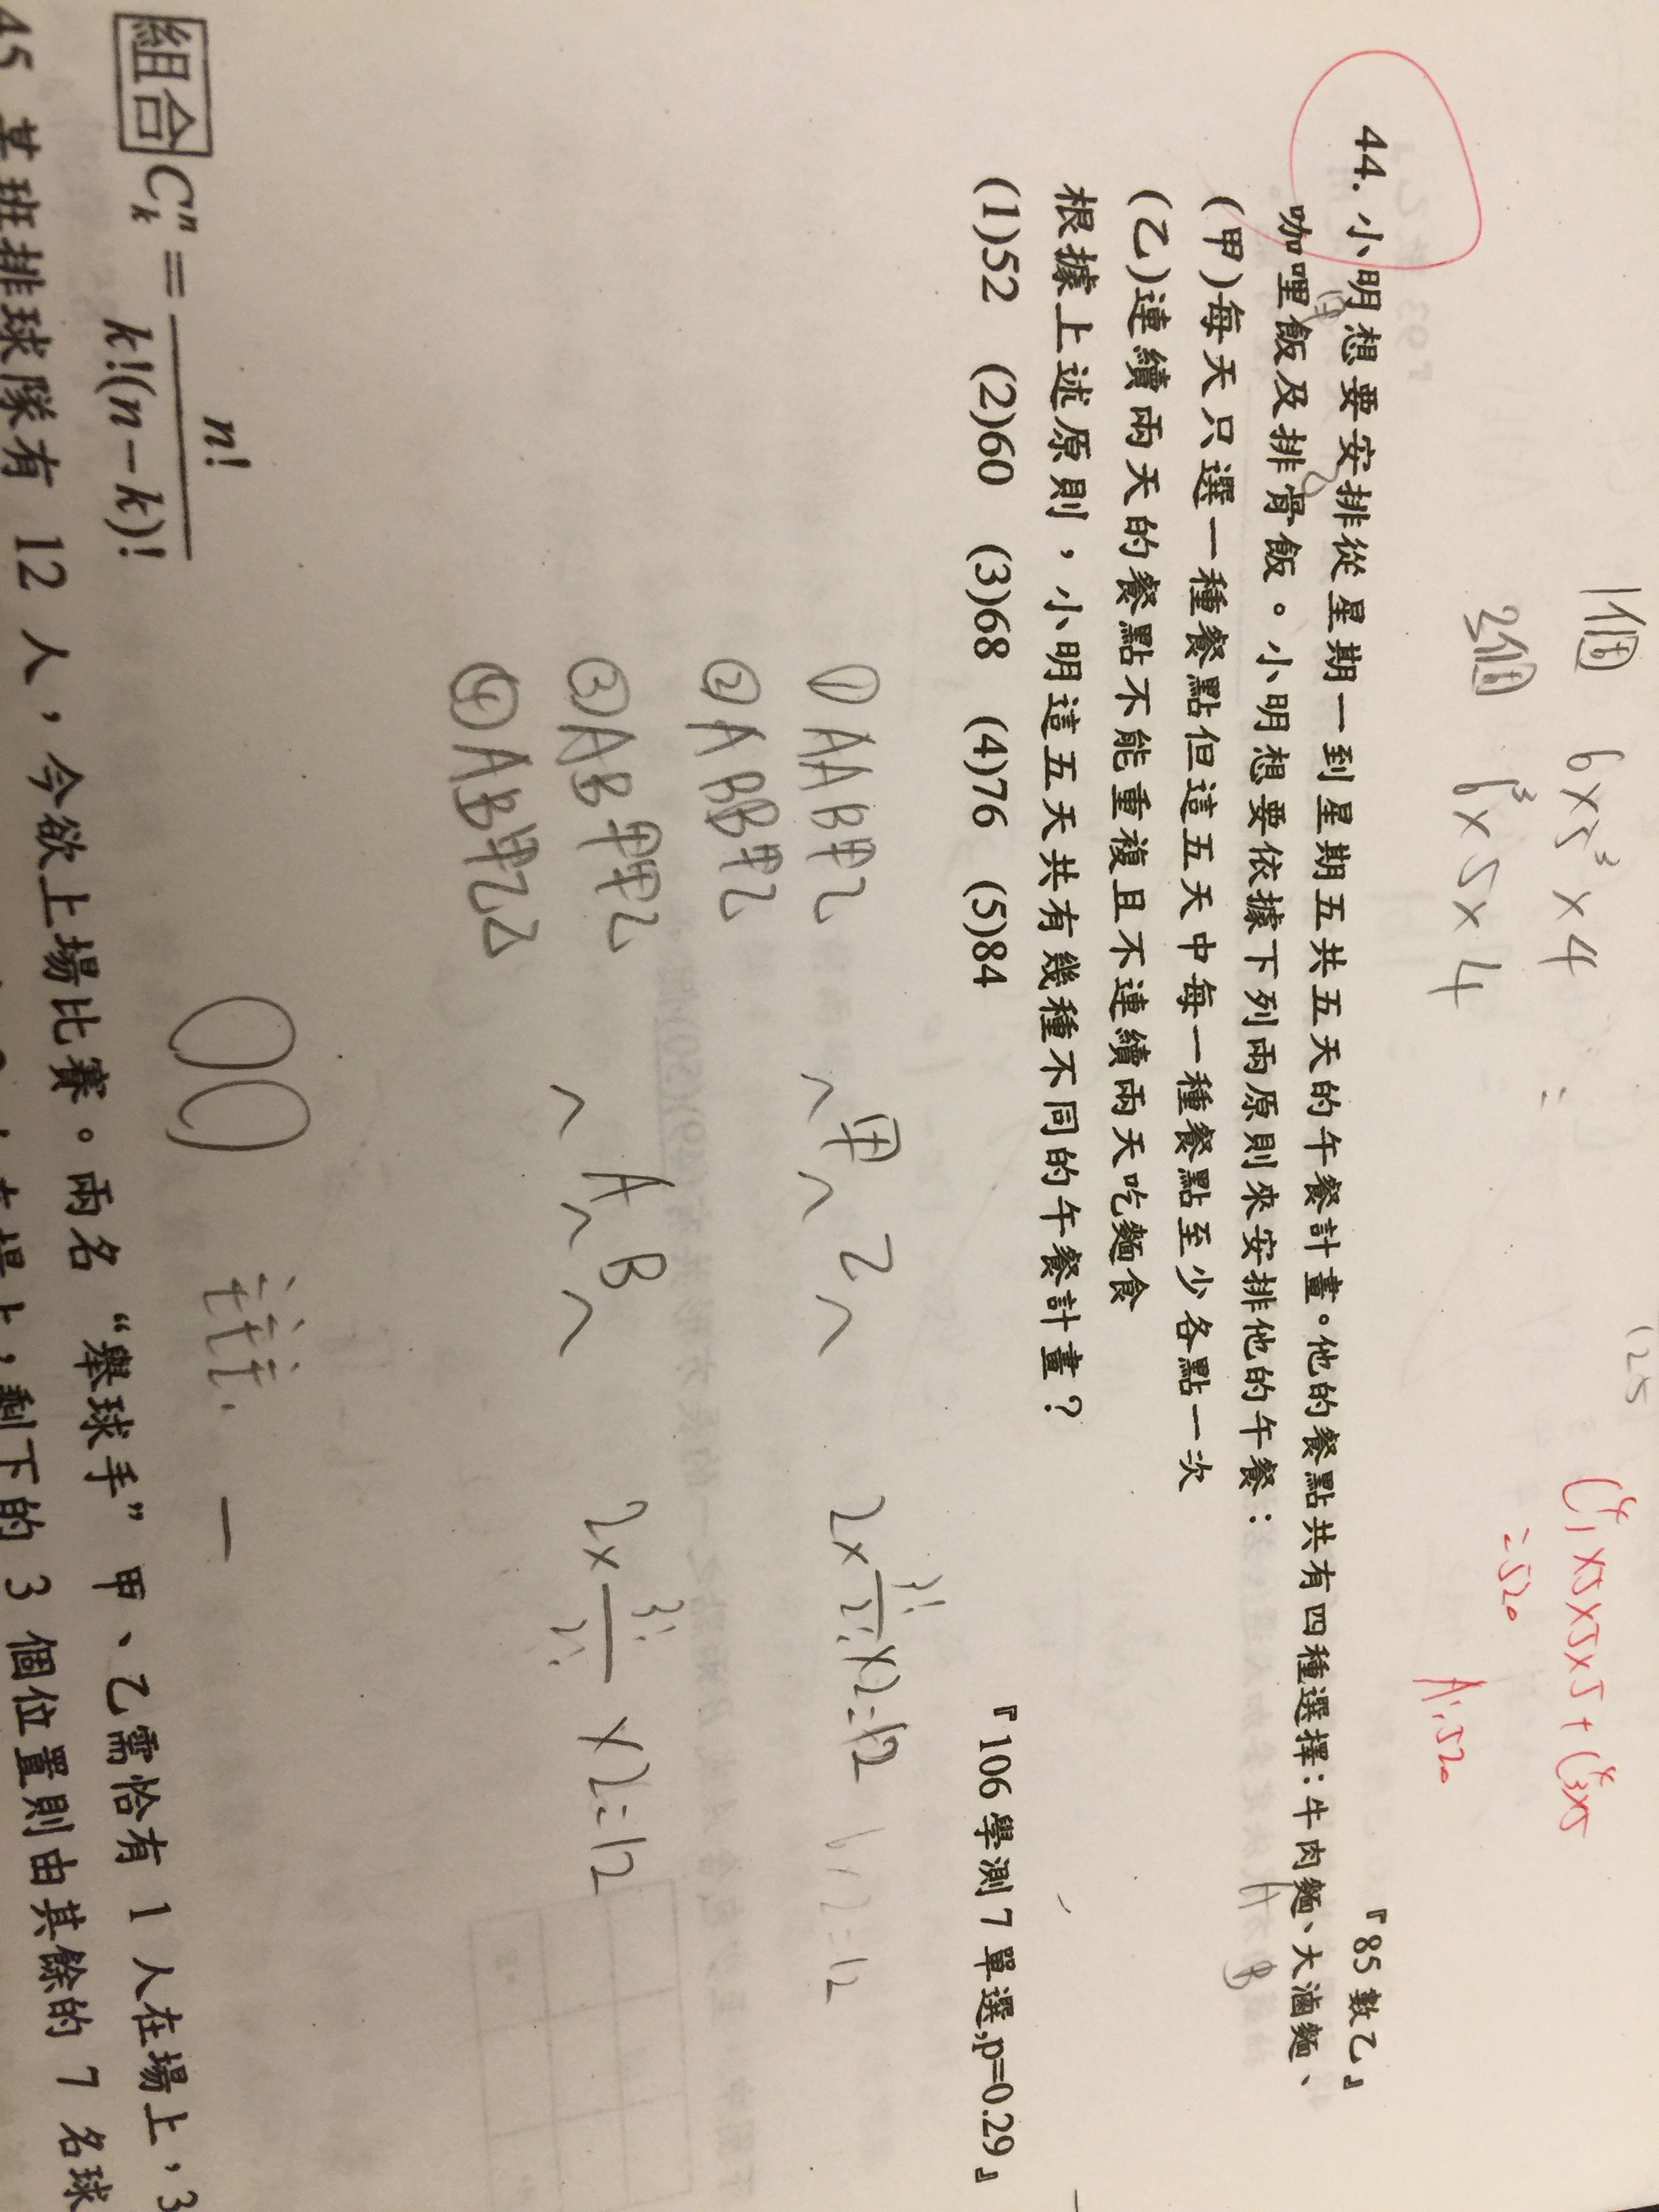 (25
1個 6×5³×4
3個 6³×5×4
C⁴₁×5×5×5+C⁴₃×5
=520
A:520
『85數乙』
44. 小明想要安排從星期一到星期五共五天的午餐計畫。他的餐點共有四種選擇：牛肉麵、大滷麵、
咖哩飯及排骨飯。小明想要依據下列兩原則來安排他的午餐：
甲 乙 A B
(甲)每天只選一種餐點但這五天中每一種餐點至少各點一次
(乙)連續兩天的餐點不能重複且不連續兩天吃麵食
根據上述原則，小明這五天共有幾種不同的午餐計畫？
(1)52 (2)60 (3)68 (4)76 (5)84
『106學測7單選,p=0.29』
①AAB甲乙 ^甲^乙^ 2×3!/2!×2=12
②ABB甲乙
③AB甲甲乙 ^A^B^ 2×3!/2!×2=12
④AB甲乙乙
組合 Cⁿₖ = n!/k!(n−k)!
45 某班排球隊有 12 人，今欲上場比賽。兩名“舉球手”甲、乙需恰有 1 人在場上，3
剩下的 3 個位置則由其餘的 7 名球